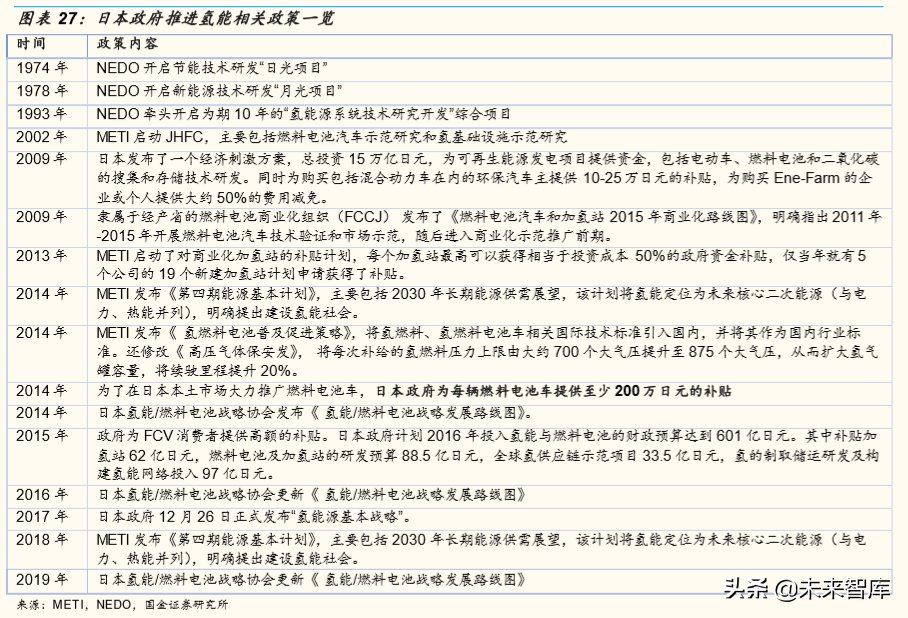 图表 27：日本政府推进氢能相关政策一览
时间 政策内容
1974 年 NEDO 开启节能技术研发“日光项目”
1978 年 NEDO 开启新能源技术研发“月光项目”
1993 年 NEDO 牵头开启为期 10 年的“氢能源系统技术研究开发”综合项目
2002 年 METI 启动 JHFC，主要包括燃料电池汽车示范研究和氢基础设施示范研究
2009 年 日本发布了一个经济刺激方案，总投资 15 万亿日元，为可再生能源发电项目提供资金，包括电动车、燃料电池和二氧化碳
的搜集和存储技术研发。同时为购买包括混合动力车在内的环保汽车主提供 10-25 万日元的补贴，为购买 Ene-Farm 的企
业或个人提供大约 50%的费用减免。
2009 年 隶属于经产省的燃料电池商业化组织（FCCJ） 发布了《燃料电池汽车和加氢站 2015 年商业化路线图》，明确指出 2011 年
-2015 年开展燃料电池汽车技术验证和市场示范，随后进入商业化示范推广前期。
2013 年 METI 启动了对商业化加氢站的补贴计划，每个加氢站最高可以获得相当于投资成本 50%的政府资金补贴，仅当年就有 5
个公司的 19 个新建加氢站计划申请获得了补贴。
2014 年 METI 发布《第四期能源基本计划》，主要包括 2030 年长期能源供需展望，该计划将氢能定位为未来核心二次能源（与电
力、热能并列），明确提出建设氢能社会。
2014 年 METI 发布《 氢燃料电池普及促进策略》，将氢燃料、氢燃料电池车相关国际技术标准引入国内，并将其作为国内行业标
准。还修改《 高压气体保安发》， 将每次补给的氢燃料压力上限由大约 700 个大气压提升至 875 个大气压，从而扩大氢气
罐容量，将续驶里程提升 20%。
2014 年 为了在日本本土市场大力推广燃料电池车，日本政府为每辆燃料电池车提供至少 200 万日元的补贴
2014 年 日本氢能/燃料电池战略协会发布《 氢能/燃料电池战略发展路线图》。
2015 年 政府为 FCV 消费者提供高额的补贴。日本政府计划 2016 年投入氢能与燃料电池的财政预算达到 601 亿日元。其中补贴加
氢站 62 亿日元，燃料电池及加氢站的研发预算 88.5 亿日元，全球氢供应链示范项目 33.5 亿日元，氢的制取储运研发及构
建氢能网络投入 97 亿日元。
2016 年 日本氢能/燃料电池战略协会更新《 氢能/燃料电池战略发展路线图》
2017 年 日本政府 12 月 26 日正式发布“氢能源基本战略”。
2018 年 METI 发布《第四期能源基本计划》，主要包括 2030 年长期能源供需展望，该计划将氢能定位为未来核心二次能源（与电
力、热能并列），明确提出建设氢能社会。
2019 年 日本氢能/燃料电池战略协会更新《 氢能/燃料电池战略发展路线图》
来源：METI，NEDO，国金证券研究所
头条 @未来智库